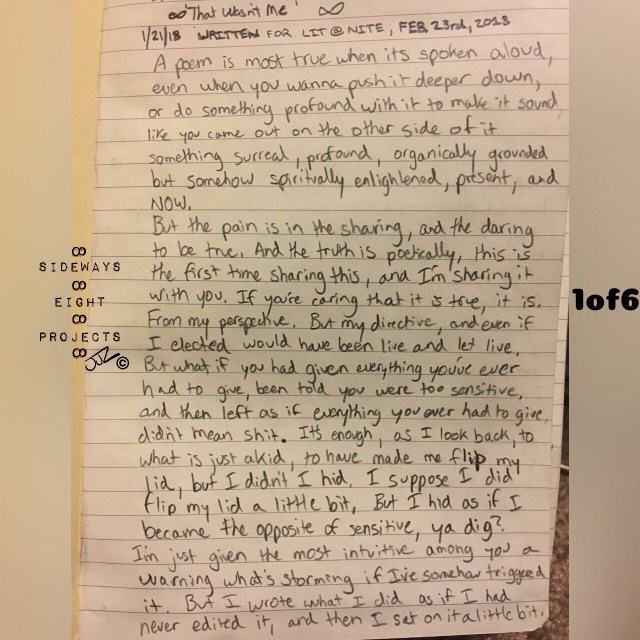 ∞ "That Wasn't Me" ∞
1/21/18 WRITTEN FOR LIT @ NITE, FEB 23rd, 2018
A poem is most true when its spoken aloud,
even when you wanna push it deeper down,
or do something profound with it to make it sound
like you came out on the other side of it
something surreal, profound, organically grounded
but somehow spiritually enlightened, present, and
NOW.
But the pain is in the sharing, and the daring
to be true. And the truth is poetically, this is
the first time sharing this, and I'm sharing it
with you. If you're caring that it is true, it is.
From my perspective. But my directive, and even if
I elected would have been live and let live.
But what if you had given everything you've ever
had to give, been told you were too sensitive,
and then left as if everything you ever had to give
didn't mean shit. It's enough, as I look back, to
what is just a kid, to have made me flip my
lid, but I didn't hid. I suppose I did
flip my lid a little bit, But I hid as if I
became the opposite of sensitive, ya dig?
I'm just given the most intuitive among you a
warning what's storming if I've somehow triggered
it. But I wrote what I did as if I had
never edited it, and then I sat on it a little bit.
∞
SIDEWAYS
∞
EIGHT
∞
PROJECTS
∞
©
1of6